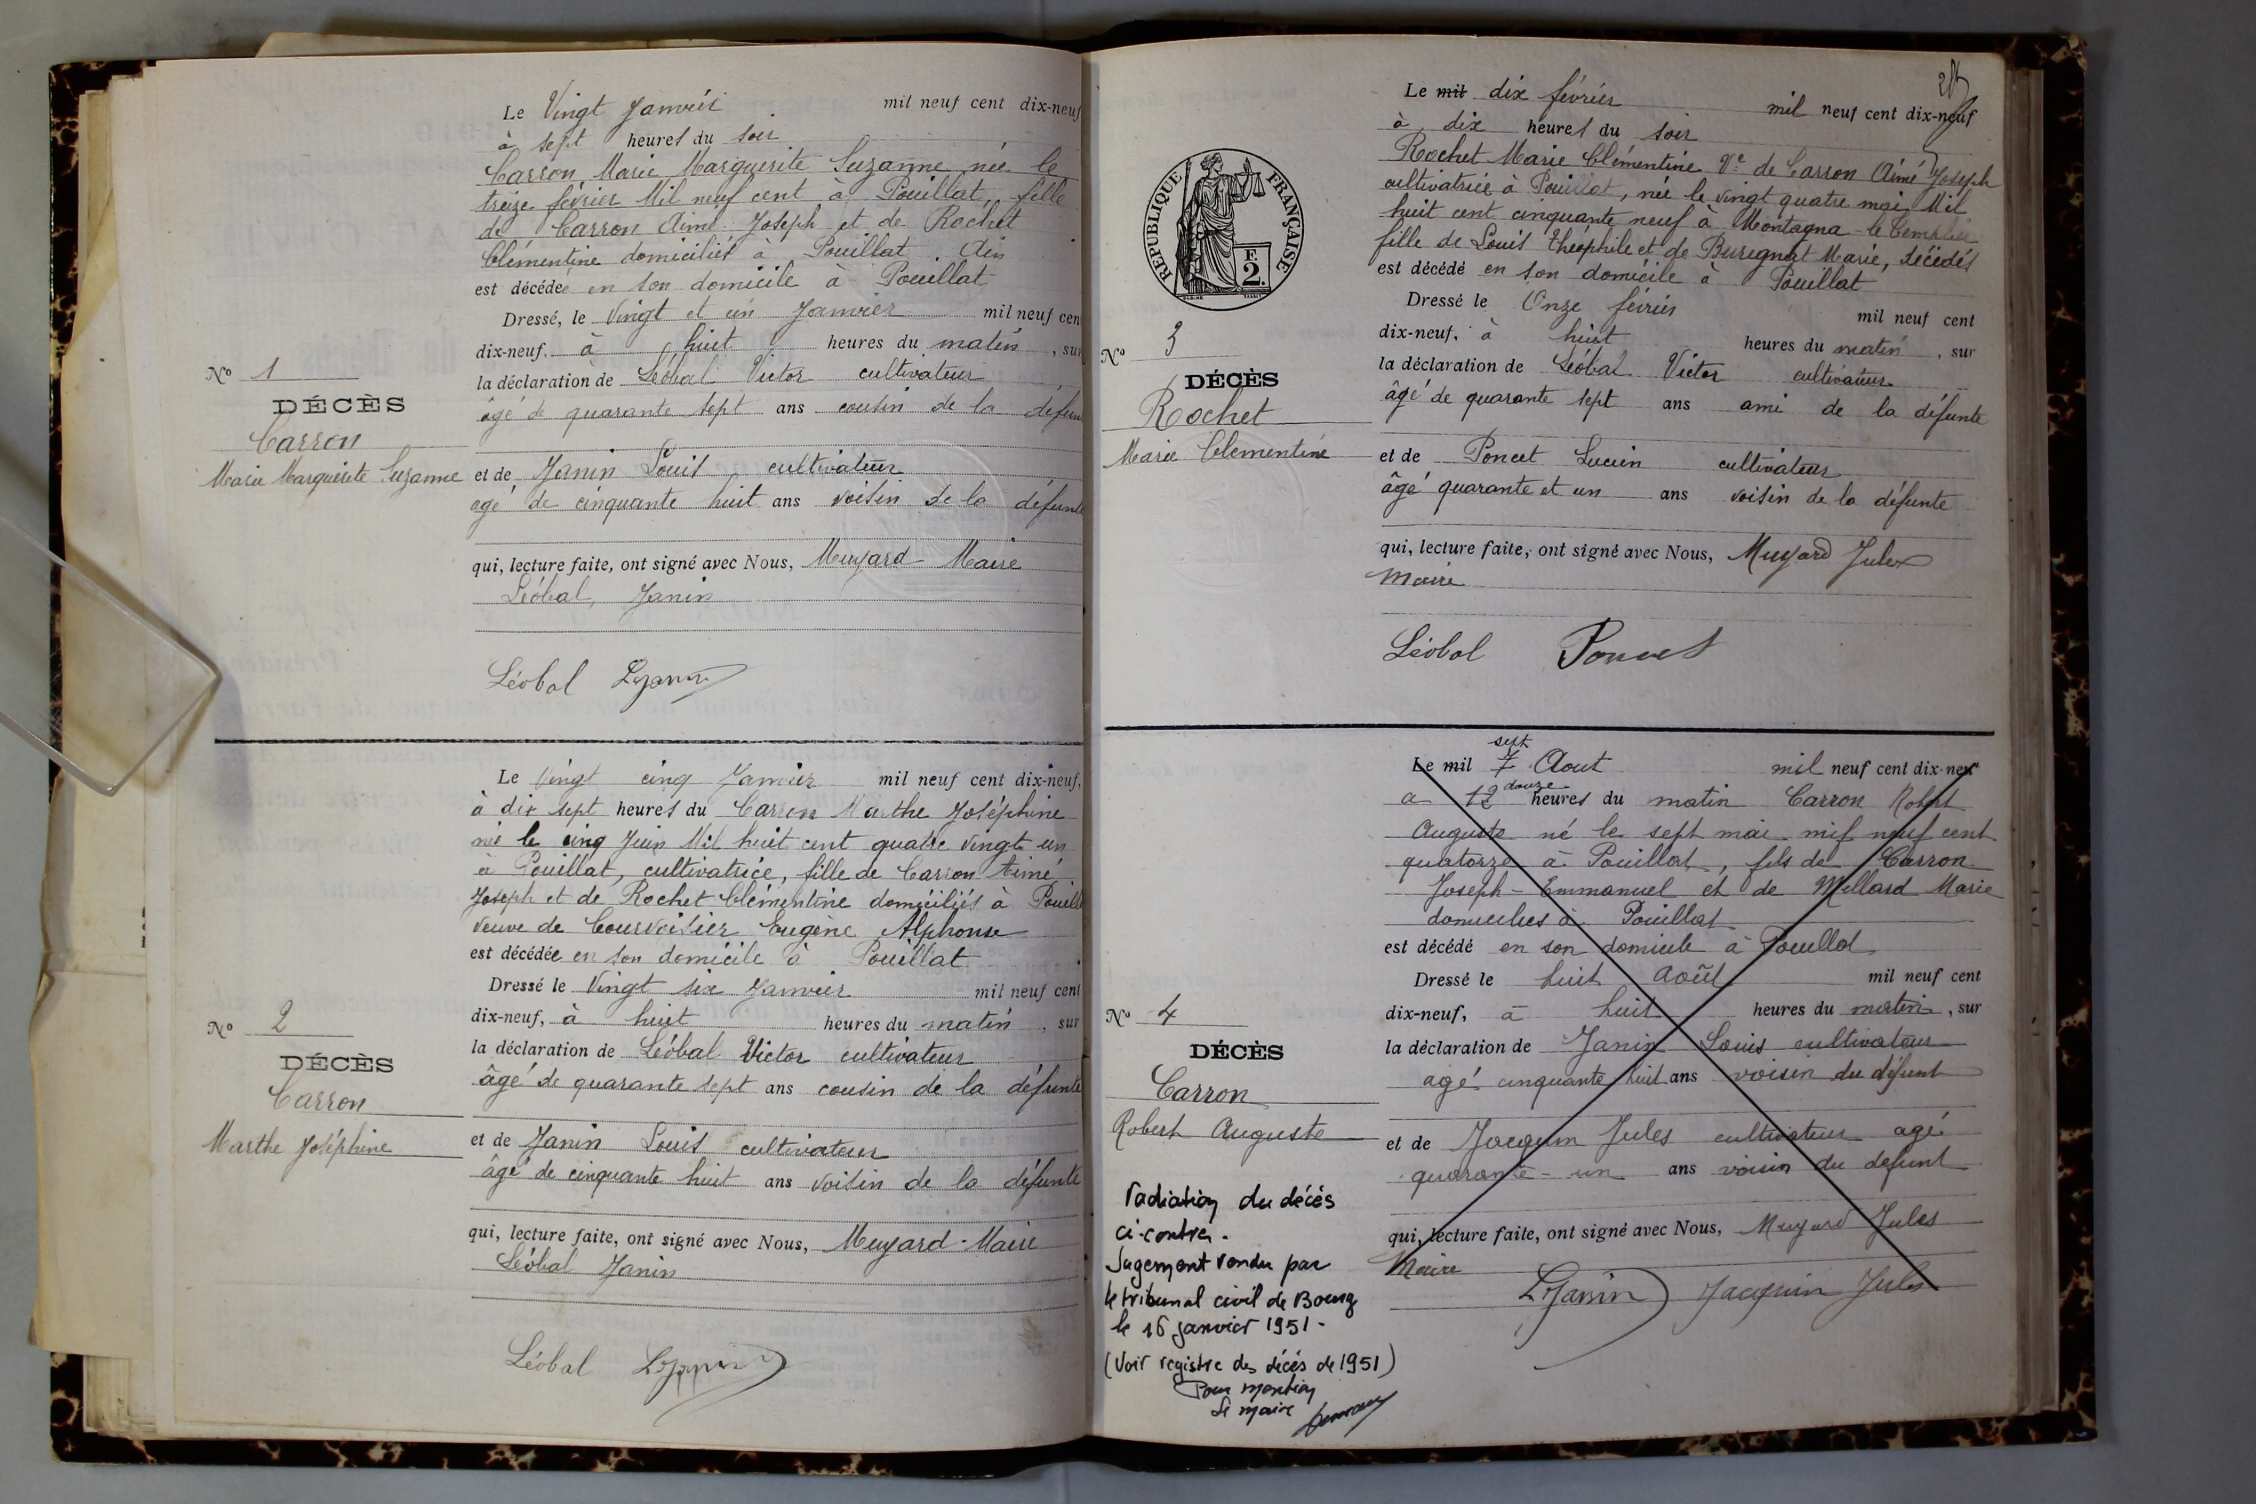 Le Vingt Janvier mil neuf cent dix-neuf
à sept heures du soir
Carron Marie Marguerite Suzanne née le
treize février Mil neuf cent à Pouillat, fille
de Carron Aimé Joseph et de Rochet
Clémentine domiciliés à Pouillat Ain
est décédée en son domicile à Pouillat
Dressé, le Vingt et un Janvier mil neuf cen
dix-neuf, à huit heures du matin, sur
la déclaration de Léobal Victor cultivateur
âgé de quarante sept ans cousin de la défun
et de Janin Louis cultivateur
agé de cinquante huit ans voisin de la défunte
qui, lecture faite, ont signé avec Nous, Muyard Maire
Léobal, Janin
Léobal LJanin
No 1
DÉCÈS
Carron
Marie Marguerite Suzanne
Le Vingt cinq Janvier mil neuf cent dix-neuf,
à dix sept heures du Carron Marthe Joséphine
née le cinq Juin Mil huit cent quatre vingt un
à Pouillat, cultivatrice, fille de Carron Aimé
Joseph et de Rochet Clémentine domiciliés à Pouill
veuve de Courvoisier Eugène Alphonse
est décédée en son domicile à Pouillat
Dressé le Vingt six Janvier mil neuf cent
dix-neuf, à huit heures du matin, sur
la déclaration de Léobal Victor cultivateur
âgé de quarante sept ans cousin de la défunte
et de Janin Louis cultivateur
âgé de cinquante huit ans voisin de la défunte
qui, lecture faite, ont signé avec Nous, Muyard Maire
Léobal Janin
Léobal LJanin
No 2
DÉCÈS
Carron
Marthe Joséphine
Le mil dix février mil neuf cent dix-neuf
à dix heures du soir
Rochet Marie Clémentine Ve de Carron Aimé Joseph
cultivatrice à Pouillat, née le vingt quatre mai Mil
huit cent cinquante neuf à Montagna-le-Templier
fille de Louis Théophile et de Buregnat Marie, décédés
est décédé en son domicile à Pouillat
Dressé le Onze février mil neuf cent
dix-neuf, à huit heures du matin, sur
la déclaration de Léobal Victor cultivateur
âgé de quarante sept ans ami de la défunte
et de Poncet Lucien cultivateur
âgé quarante et un ans voisin de la défunte
qui, lecture faite, ont signé avec Nous, Muyard Jules
Maire
Léobal Poncet
RÉPUBLIQUE FRANÇAISE
E
2.
No 3
DÉCÈS
Rochet
Marie Clementine
sept
Le mil 7 Aout mil neuf cent dix-neuf
douze
a 12 heures du matin Carron Robert
Auguste né le sept mai mil neuf cent
quatorze à Pouillat, fils de Carron
Joseph-Emmanuel et de Millard Marie
domicilies à Pouillat
est décédé en son domicile à Pouillat
Dressé le huit Août mil neuf cent
dix-neuf, à huit heures du matin, sur
la déclaration de Janin Louis cultivateur
agé cinquante huit ans voisin du défunt
et de Jacquin Jules cultivateur agé
quarante-un ans voisin du defunt
qui, lecture faite, ont signé avec Nous, Muyard Jules
Maire
LJanin Jacquin Jules
No 4
DÉCÈS
Carron
Robert Auguste
radiation du décès
ci-contre.
Jugement rendu par
le tribunal civil de Bourg
le 16 janvier 1951-
(Voir registre des décès de 1951)
Pour mention
Le maire